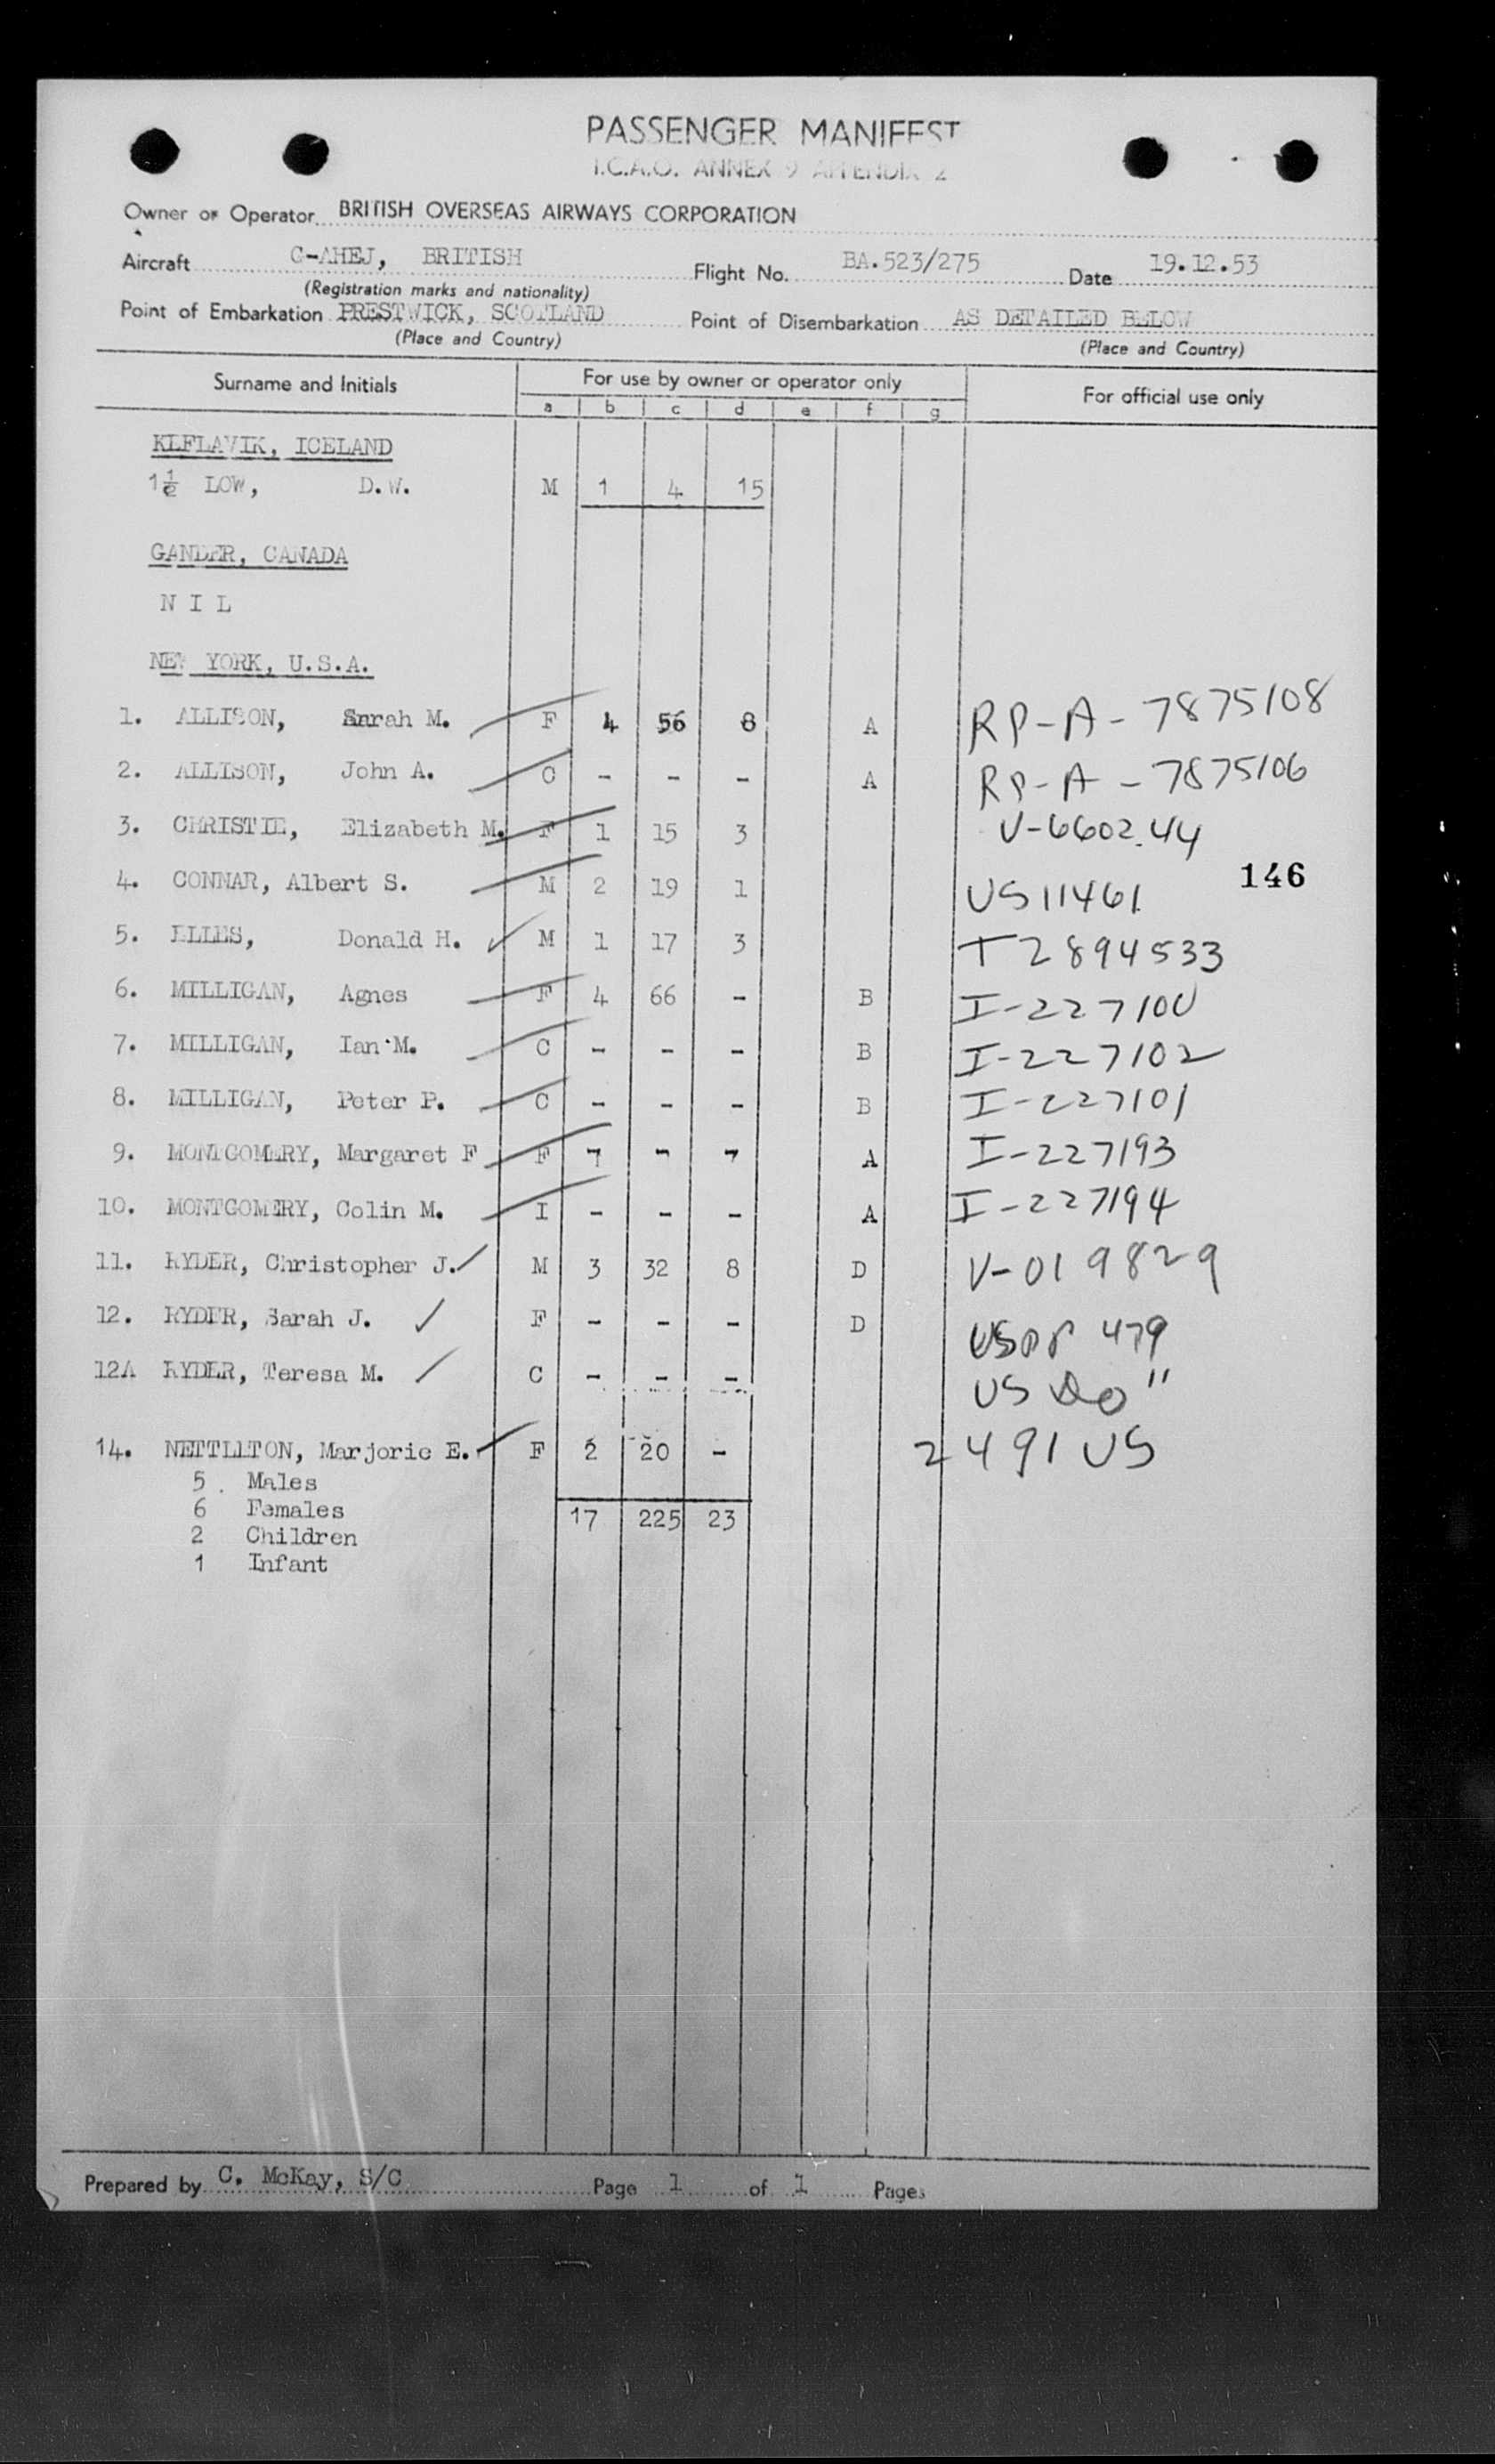 PASSENGER MANIFEST
I.C.A.O. ANNEX 9 APPENDIX 2
Owner or Operator BRITISH OVERSEAS AIRWAYS CORPORATION
Aircraft G-AHEJ, BRITISH Flight No. BA.523/275 Date 19.12.53
(Registration marks and nationality)
Point of Embarkation PRESTWICK, SCOTLAND Point of Disembarkation AS DETAILED BELOW
(Place and Country) (Place and Country)
Surname and Initials For use by owner or operator only For official use only
a b c d e f g
KEFLAVIK, ICELAND
1½ LOW, D.W. M 1 4 15
GANDER, CANADA
N I L
NEW YORK, U.S.A.
1. ALLISON, Sarah M. F 4 56 8 A RP-A-7875108
2. ALLISON, John A. C - - - A RP-A-7875106
3. CHRISTIE, Elizabeth M. F 1 15 3 V-6602.44
4. CONNAR, Albert S. M 2 19 1 US11461 146
5. ELLES, Donald H. M 1 17 3 T2894533
6. MILLIGAN, Agnes F 4 66 - B I-227100
7. MILLIGAN, Ian M. C - - - B I-227102
8. MILLIGAN, Peter P. C - - - B I-227101
9. MONTGOMERY, Margaret F F - - - A I-227193
10. MONTGOMERY, Colin M. I - - - A I-227194
11. RYDER, Christopher J. M 3 32 8 D V-019829
12. RYDER, Sarah J. F - - - D USPP 479
12A RYDER, Teresa M. C - - - US Do "
14. NETTLETON, Marjorie E. F 2 20 - 2491 US
5. Males
6 Females 17 225 23
2 Children
1 Infant
Prepared by C. McKay, S/C Page 1 of 1 Pages